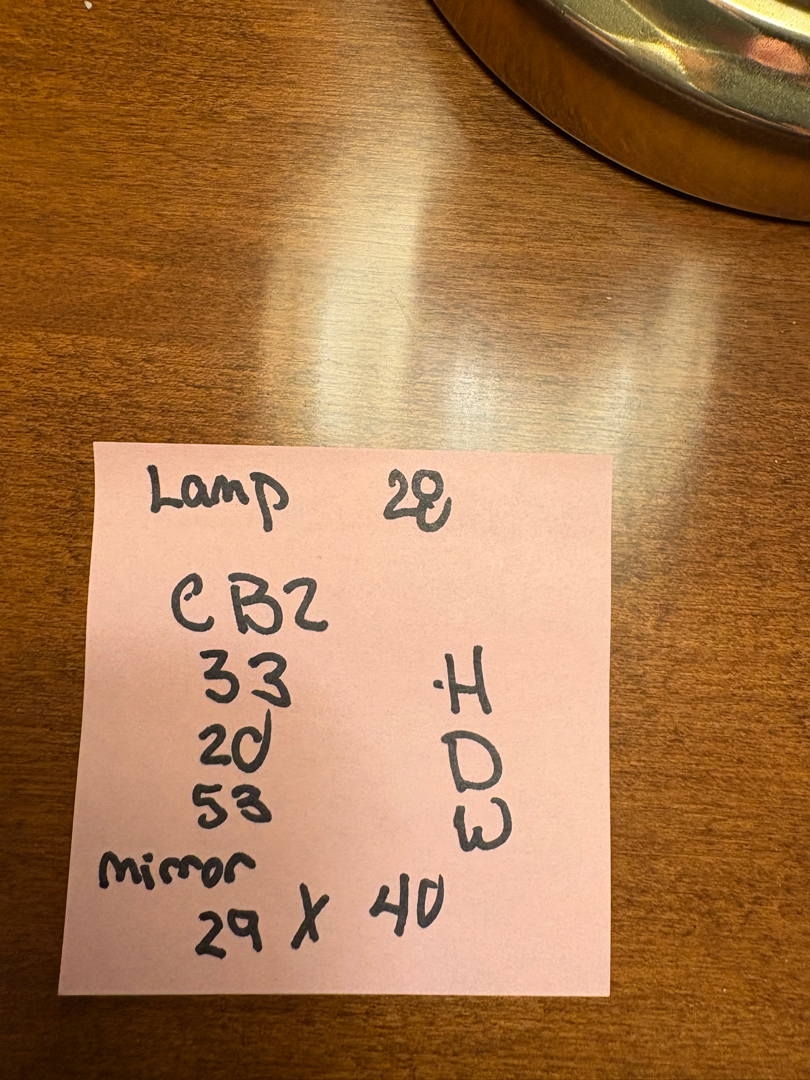 Lamp 28
CB2
33 H
20 D
53 W
mirror
29 X 40